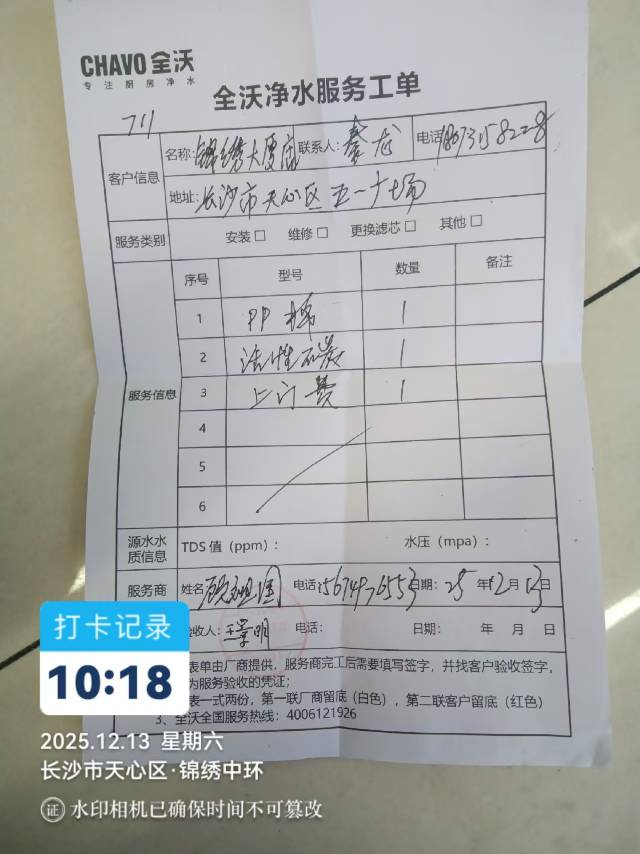 CHAVO 全沃
专注厨房净水
全沃净水服务工单
711
客户信息
名称: 锦绣大厦店 联系人: 秦龙 电话 18673158228
地址: 长沙市天心区五一广场
服务类别 安装□ 维修□ 更换滤芯□ 其他□
服务信息
序号 型号 数量 备注
1 PP棉 1
2 活性石炭 1
3 上门费 1
4
5
6
源水水质信息 TDS 值（ppm）: 水压（mpa）:
服务商 姓名 电话: 15674976553 日期: 25 年 12 月 13 日
验收人: 王景明 电话: 日期: 年 月 日
表单由厂商提供，服务商完工后需要填写签字，并找客户验收签字，
为服务验收的凭证;
表一式两份，第一联厂商留底（白色），第二联客户留底（红色）
3、全沃全国服务热线: 4006121926
打卡记录
10:18
2025.12.13 星期六
长沙市天心区·锦绣中环
证 水印相机已确保时间不可篡改